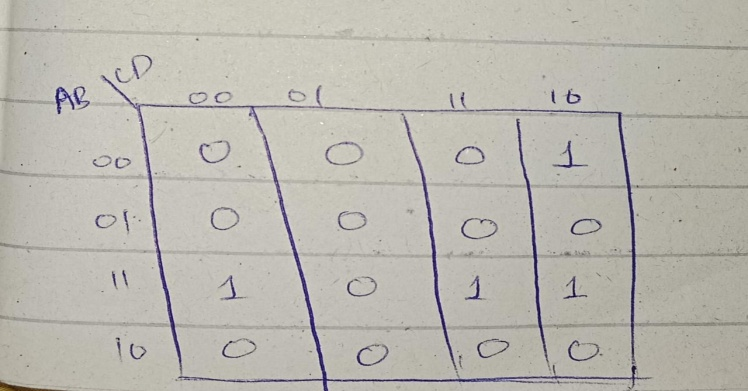 AB \ CD
00 01 11 10
00 0 0 0 1
01 0 0 0 0
11 1 0 1 1
10 0 0 0 0